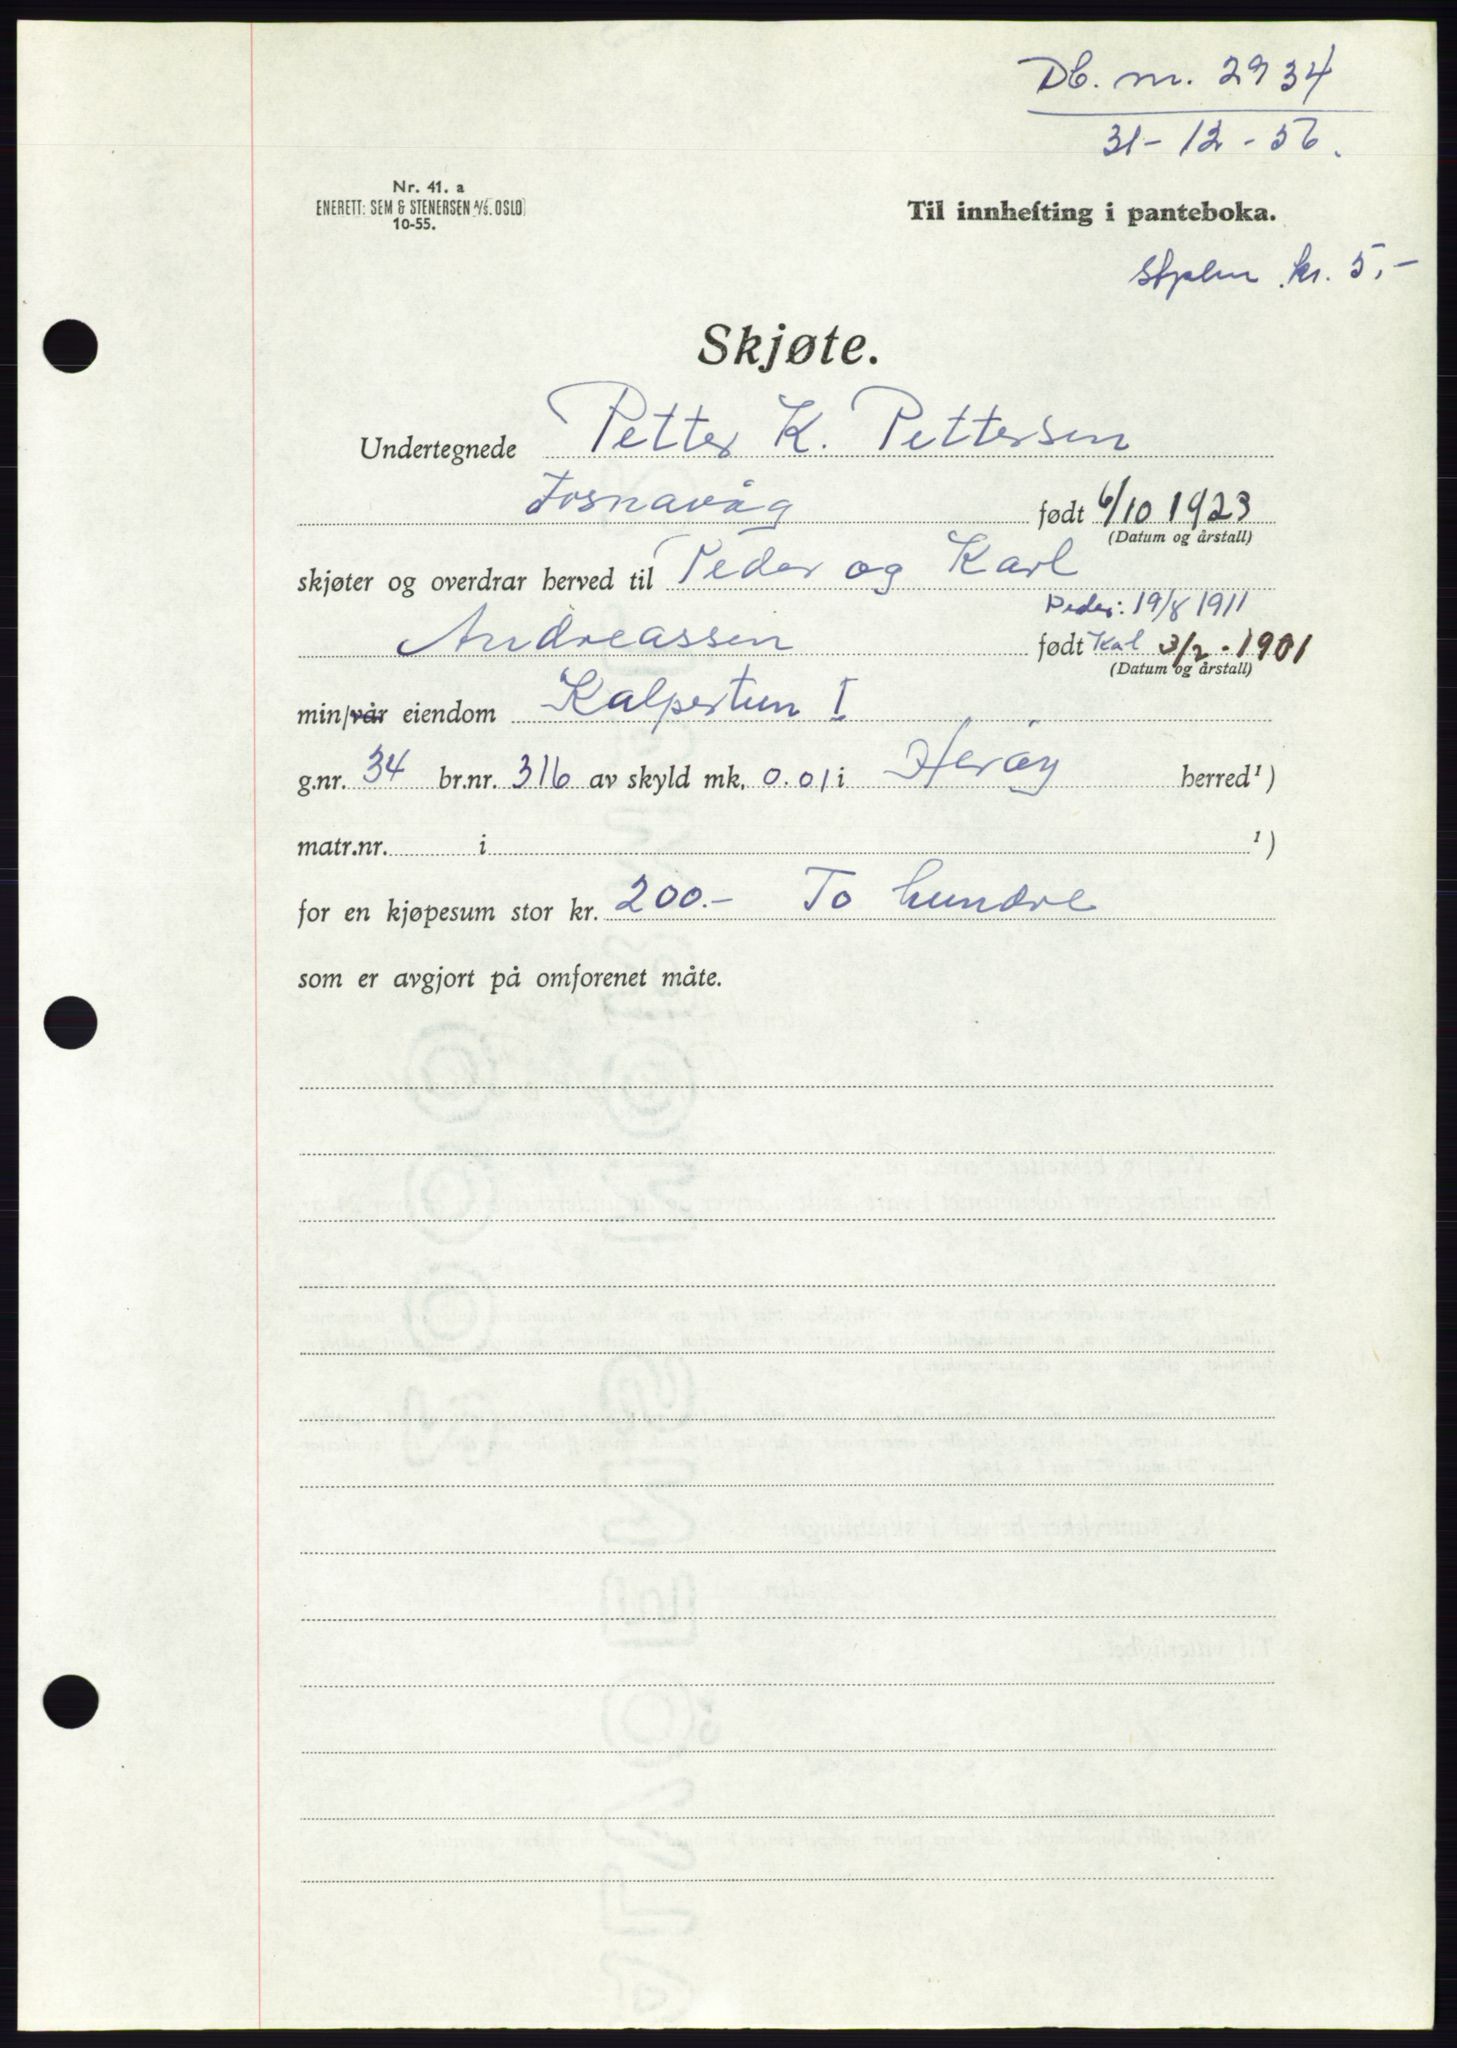 Db. nr. 2934
31-12-56.
Nr. 41. a
ENERETT: SEM & STENERSEN A/S. OSLO
10-55.
Til innhefting i panteboka.
kr. 5,-
Skjøte.
Undertegnede Petter K. Pettersen
Fosnavåg født 6/10 1923
(Datum og årstall)
skjøter og overdrar herved til Peder og Karl
Peder: 19/8 1911
Andreassen født Karl 3/2-1901
(Datum og årstall)
min/vår eiendom Kalpertun I
g.nr. 34 br.nr. 316 av skyld mk. 0.01 i Herøy herred¹)
matr.nr. i ¹)
for en kjøpesum stor kr. 200.- To hundre
som er avgjort på omforenet måte.